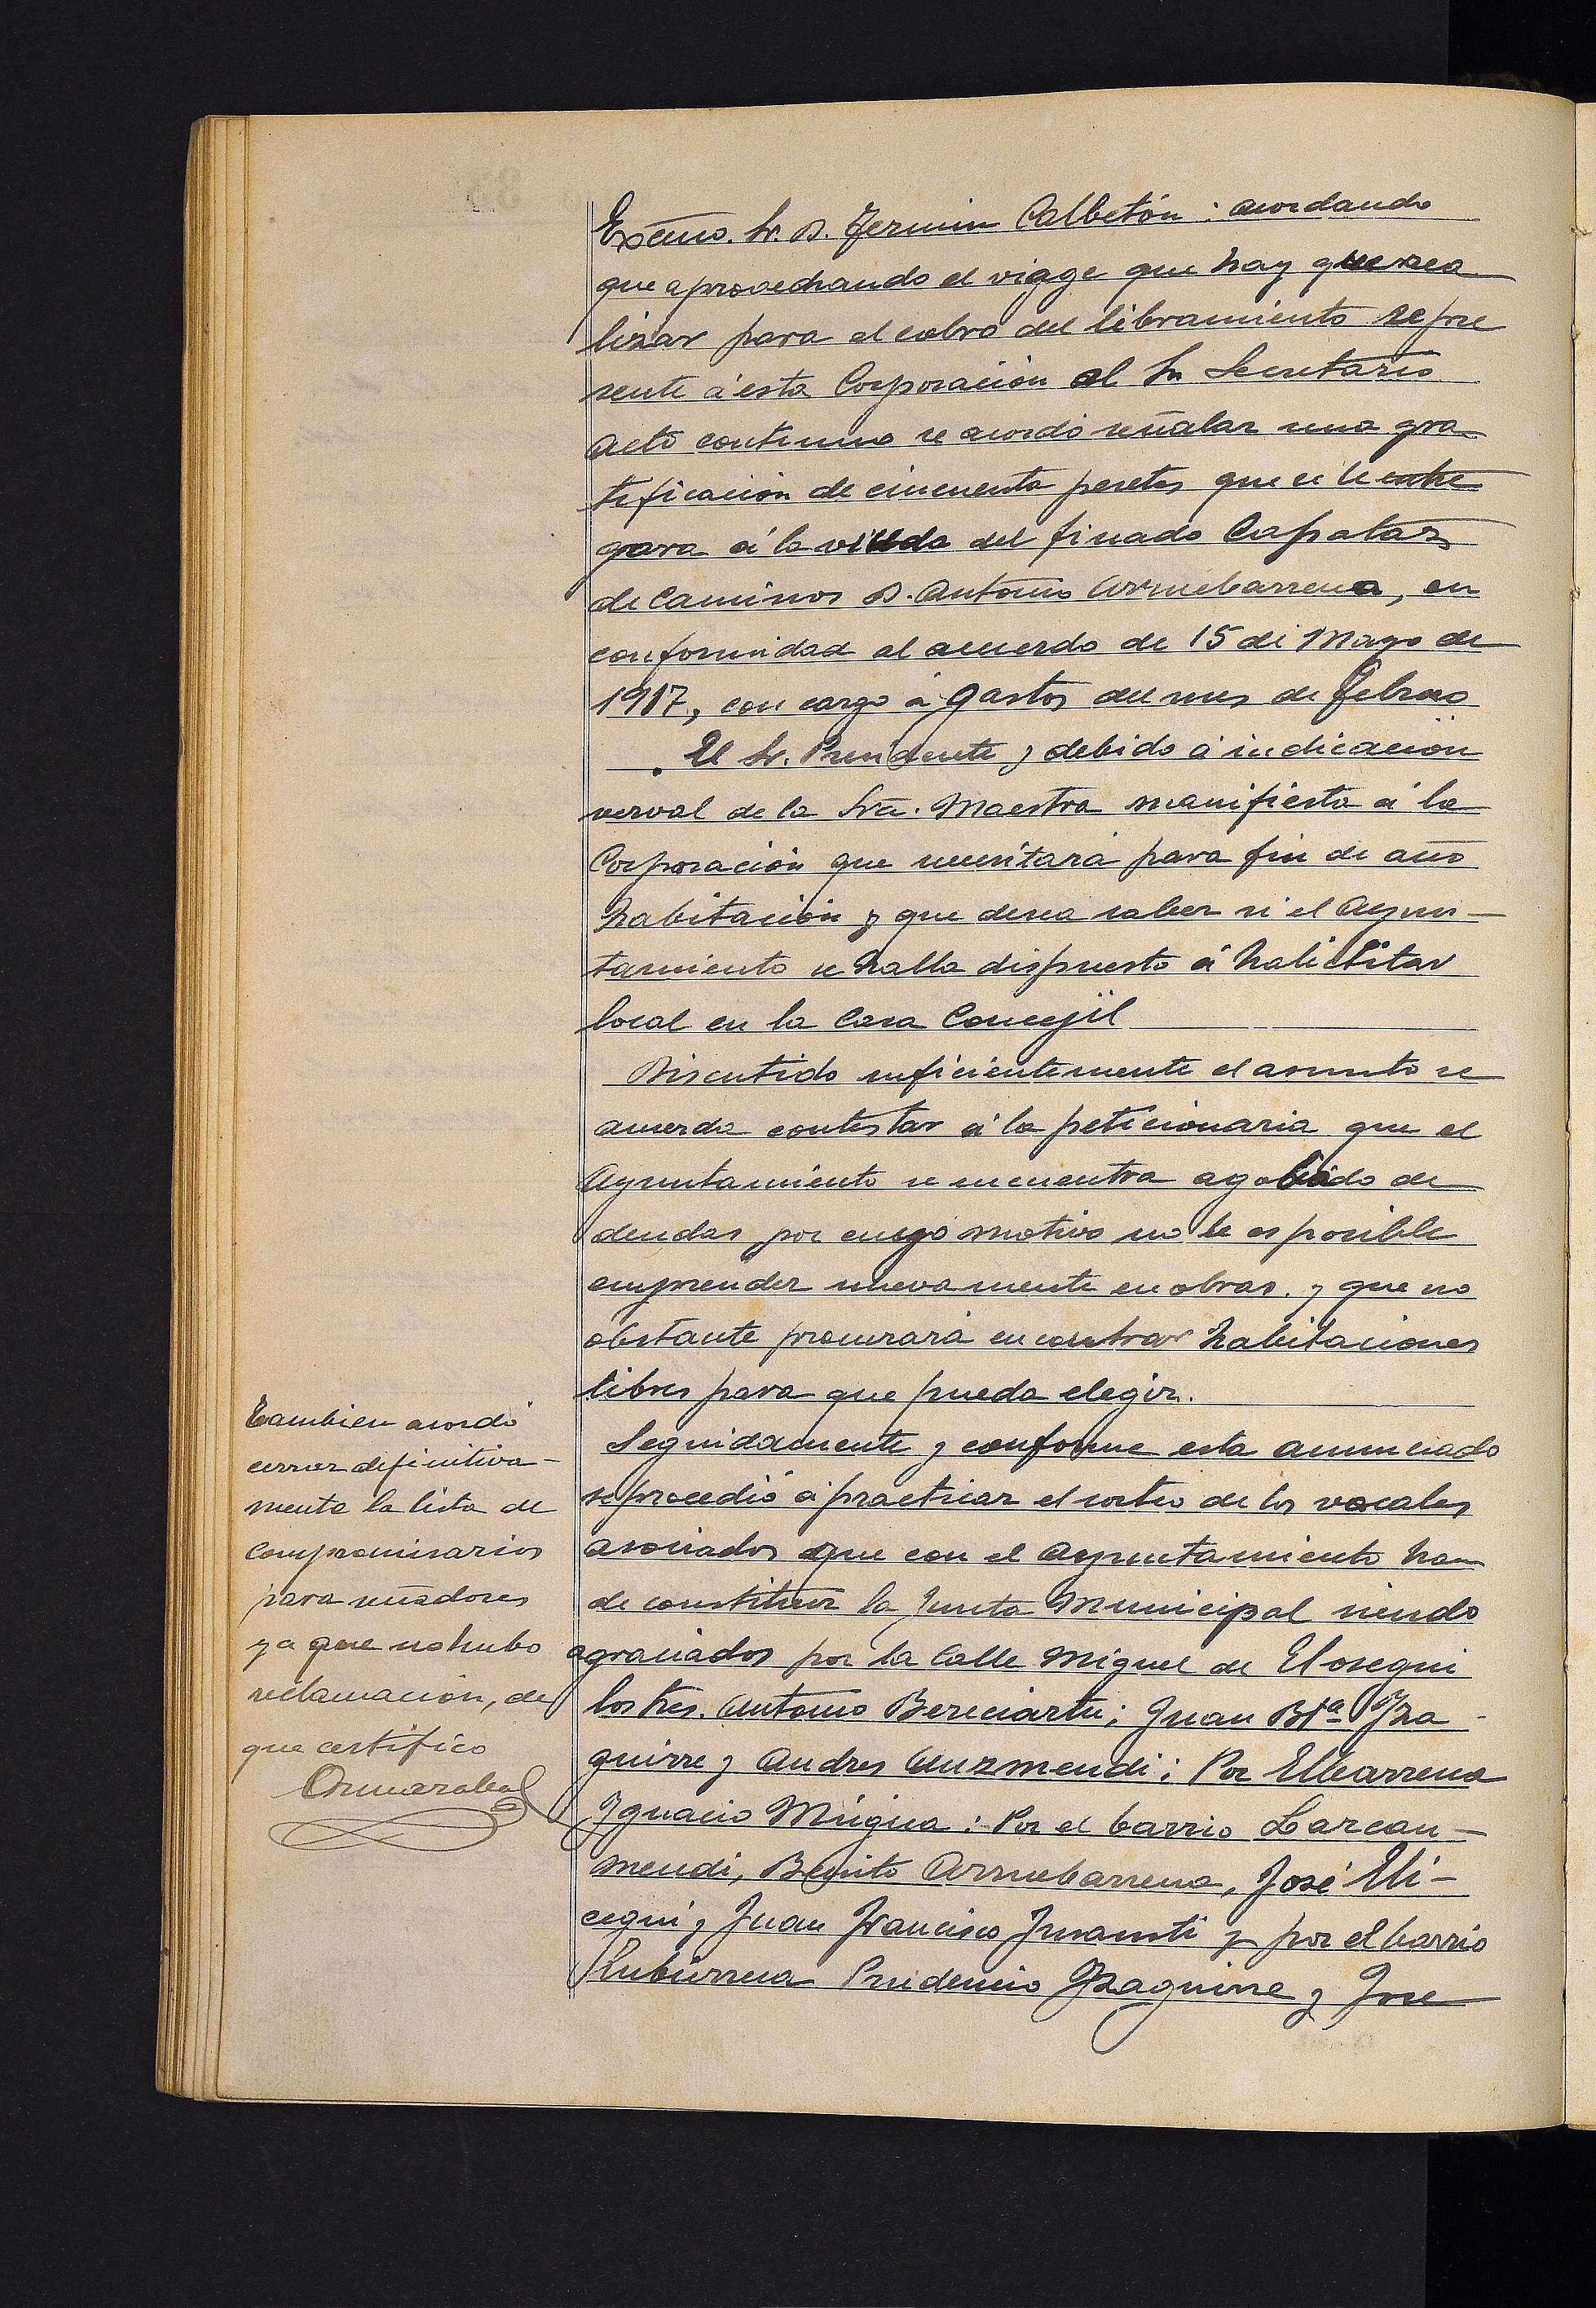 Excmo. Sr. D. Fermin Calbetón: acordando
que aprovechando el viage que hay que rea
lizar para el cobro del libramiento repre
sente á esta Corporación el Sr Secretario
Acto continuo se acordó señalar una gra-
tificación de cincuenta pesetas que se le entre
gara á la viuda del finado Capataz
de Caminos D. Antonio Arruebarrena, en
conformidad al acuerdo de 15 de Mayo de
1917, con cargo á gastos del mes de febrero
El Sr. Presidente y debido á indicación
verval de la Sra. Maestra manifiesta á la
Corporación que necesitará para fin de año
habitación y que desea saber si el Ayun-
tamiento se halla dispuesto á habilitar
local en la Casa Concejil
Discutido suficientemente el asunto se
acuerda contestar á la peticionaria que el
Ayuntamiento se encuentra agobiado de
deudas por cuyo motivo no le es posible
emprender nuevamente en obras. y que no
obstante procurará encontrar habitaciones
libres para que pueda elegir.
Seguidamente y conforme esta anunciado
se procedió á practicar el sorteo de los vocales
asociados que con el Ayuntamiento han
de constituir la Junta Municipal siendo
agraciados por la Calle Miguel de Elosegui
los tres. Antonio Bereciartu; Juan Bta Yza
guirre y Andres Auzmendi; Por Elbarrena
Ygnacio Múgica: Por el barrio Larcan-
mendi, Benito Arruebarrena, José Eli-
cegui y Juan Francisco y por el barrio
Prudencio Yzaguirre y Jose
Tambien acordó
cerrar definitiva-
mente la lista de
compromisarios
para senadores
ya que no hubo
reclamación, de
que certifico